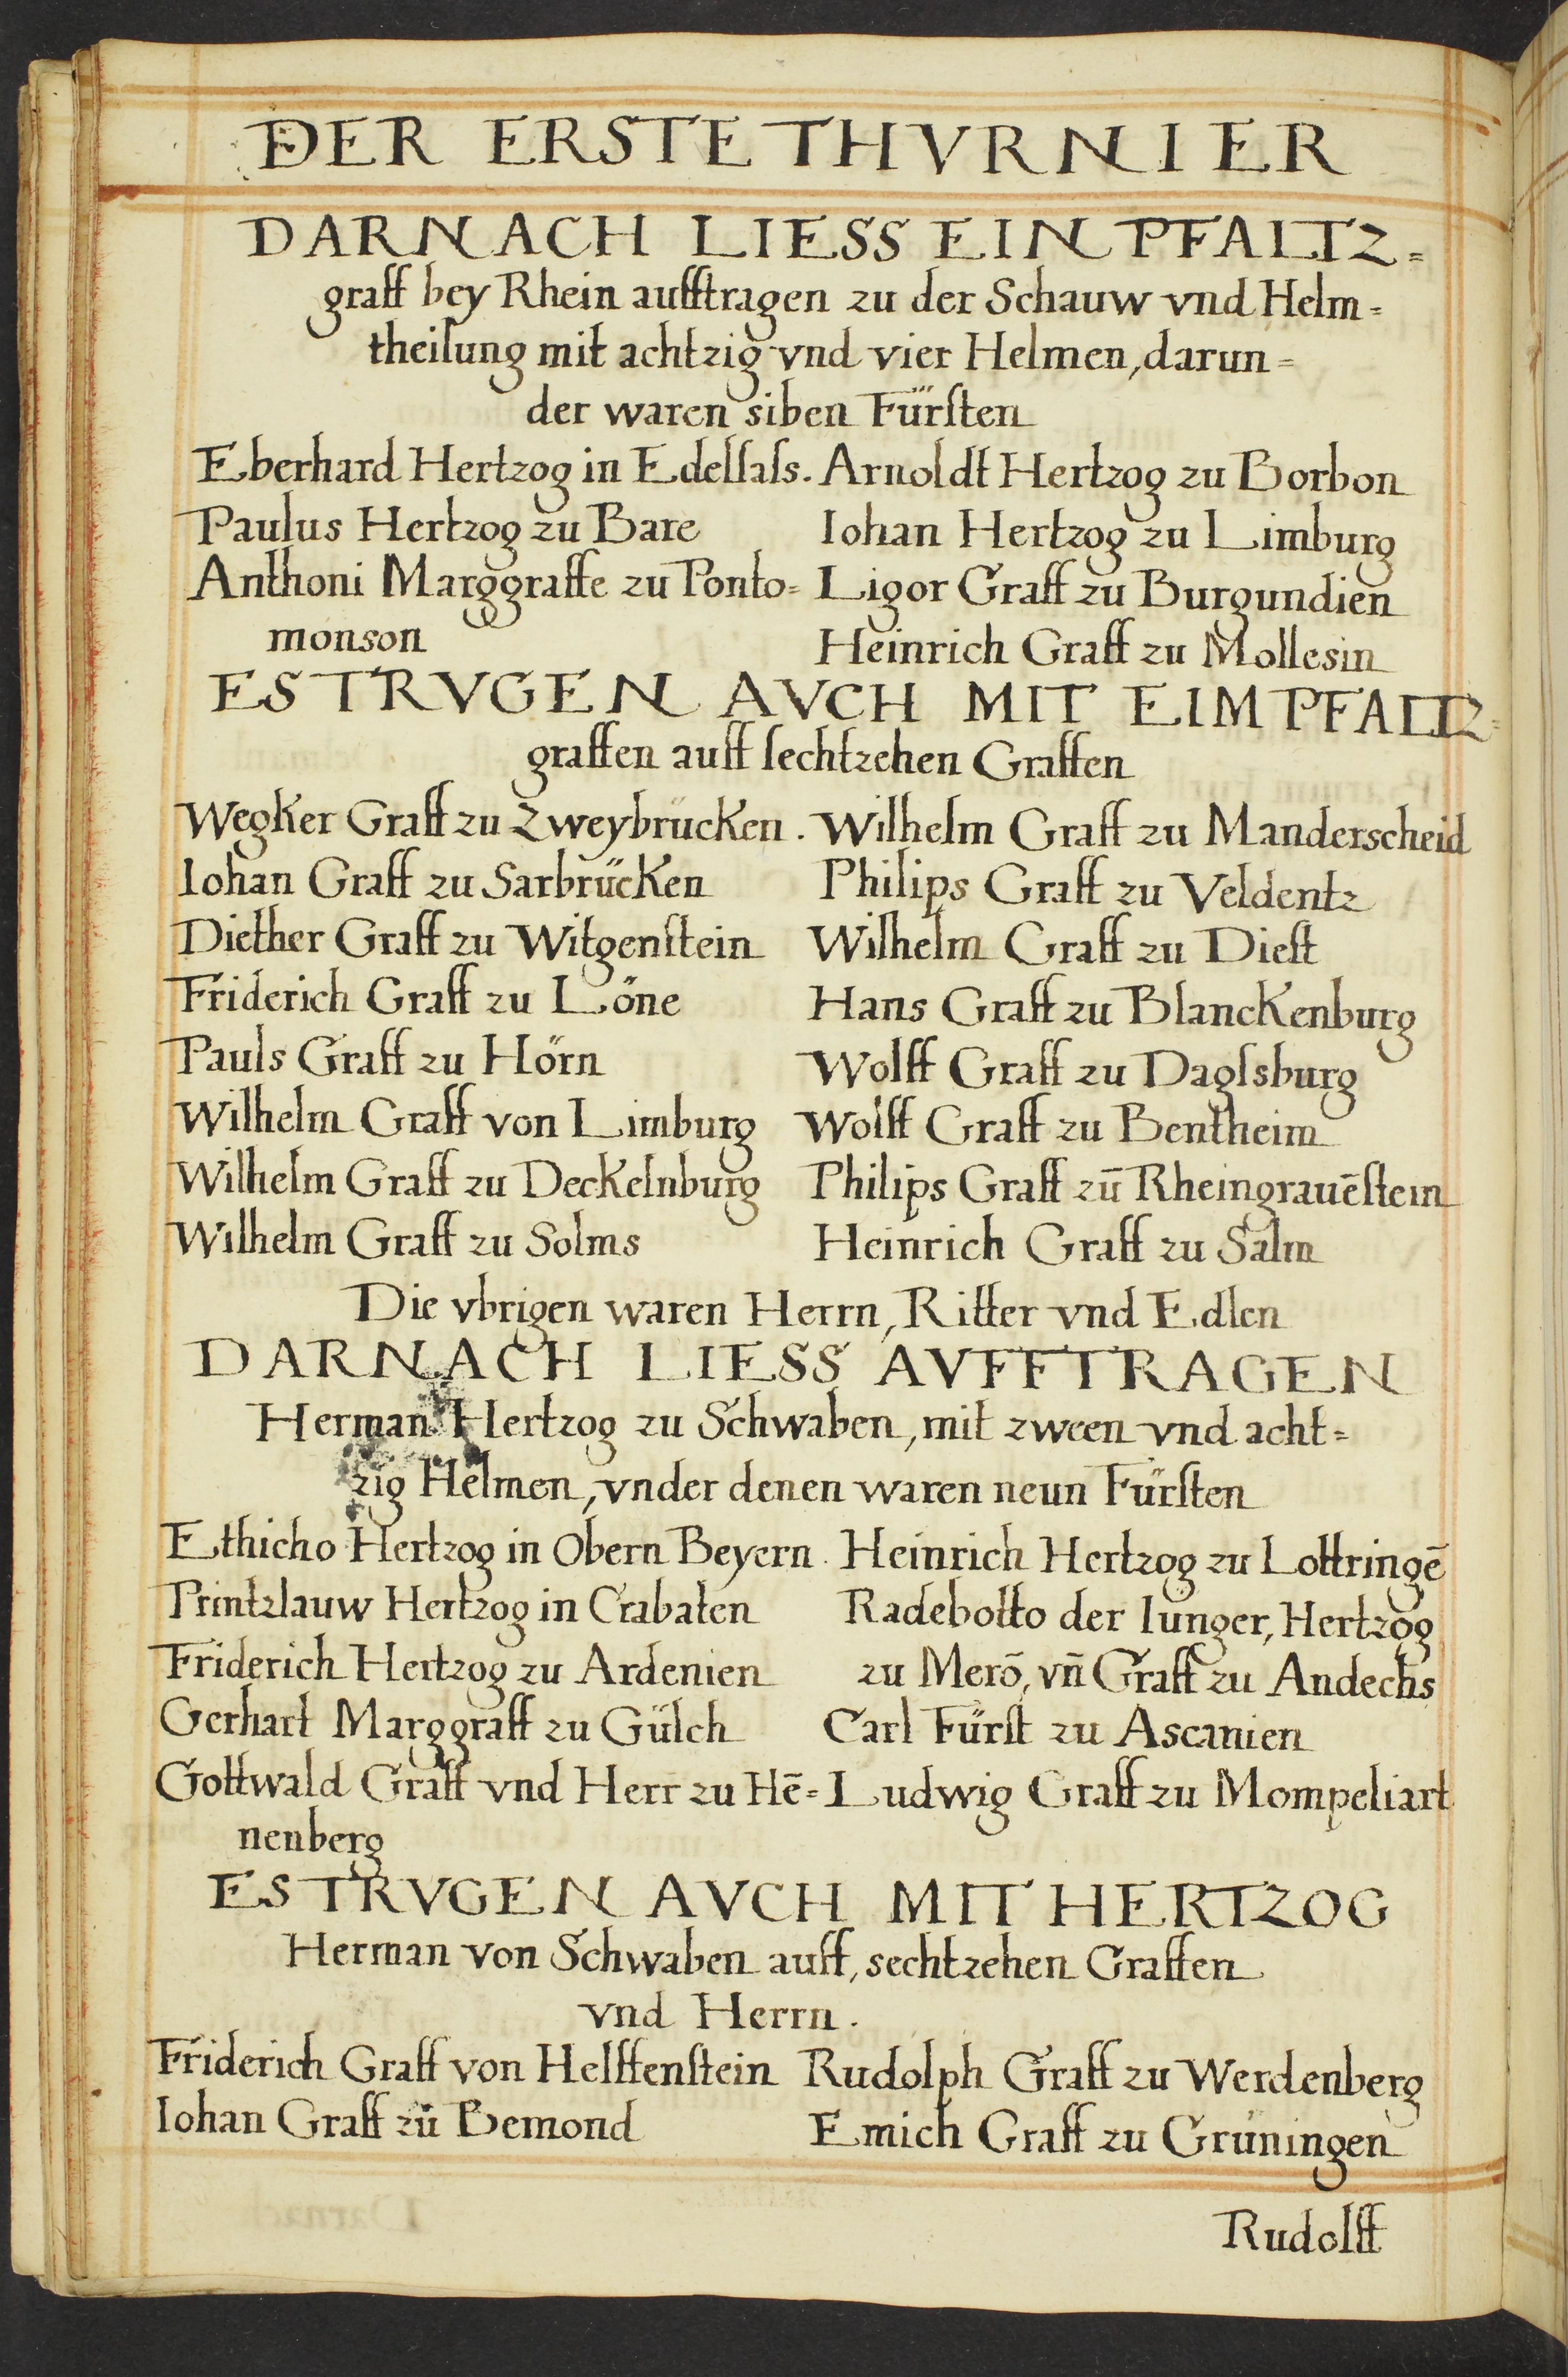 DER ERSTE THVRNIER
DARNACH LIESS EIN PFALTZ=
graff bey Rhein aufftragen zu der Schauw vnd Helm=
theilung mit achtzig vnd vier Helmen, darun=
der waren siben Fürſten
Eberhard Hertzog in Edelſaſs. Arnoldt Hertzog zu Borbon
Paulus Hertzog zu Bare Iohan Hertzog zu Limburg
Anthoni Marggraffe zu Ponto= Ligor Graff zu Burgundien
monson Heinrich Graff zu Mollesin
ES TRVGEN AVCH MIT EIM PFALTZ=
graffen auff ſechtzehen Graffen
Wegker Graff zu Zweybrücken. Wilhelm Graff zu Manderscheid
Iohan Graff zu Sarbrücken Philips Graff zu Veldentz
Diether Graff zu Witgenſtein Wilhelm Graff zu Dieſt
Friderich Graff zu Löne Hans Graff zu Blanckenburg
Pauls Graff zu Hörn Wolff Graff zu Daglsburg
Wilhelm Graff von Limburg Wolff Graff zu Bentheim
Wilhelm Graff zu Deckelnburg Philips Graff zū Rheingrauēſtein
Wilhelm Graff zu Solms Heinrich Graff zu Salm
Die vbrigen waren Herrn, Ritter vnd Edlen
DARNACH LIESS AVFFTRAGEN
Herman Hertzog zu Schwaben, mit zween vnd acht=
zig Helmen, vnder denen waren neun Fürſten
Ethicho Hertzog in Obern Beyern. Heinrich Hertzog zu Lottringē
Printzlauw Hertzog in Crabaten Radebotto der Iunger, Hertzog
Friderich Hertzog zu Ardenien zu Merō, vn̄ Graff zu Andechs
Gerhart Marggraff zu Gülch Carl Fürſt zu Ascanien
Gottwald Graff vnd Herr zu Hē= Ludwig Graff zu Mompeliart
nenberg
ES TRVGEN AVCH MIT HERTZOG
Herman von Schwaben auff, sechtzehen Graffen
vnd Herrn.
Friderich Graff von Helffenſtein Rudolph Graff zu Werdenberg
Iohan Graff zů Bemond Emich Graff zu Grüningen
Rudolff